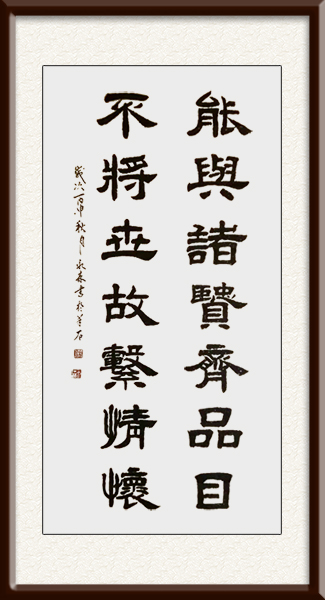 能與諸賢齊品目
不將世故繫情懷
歲次丙申秋月永森書於黃石